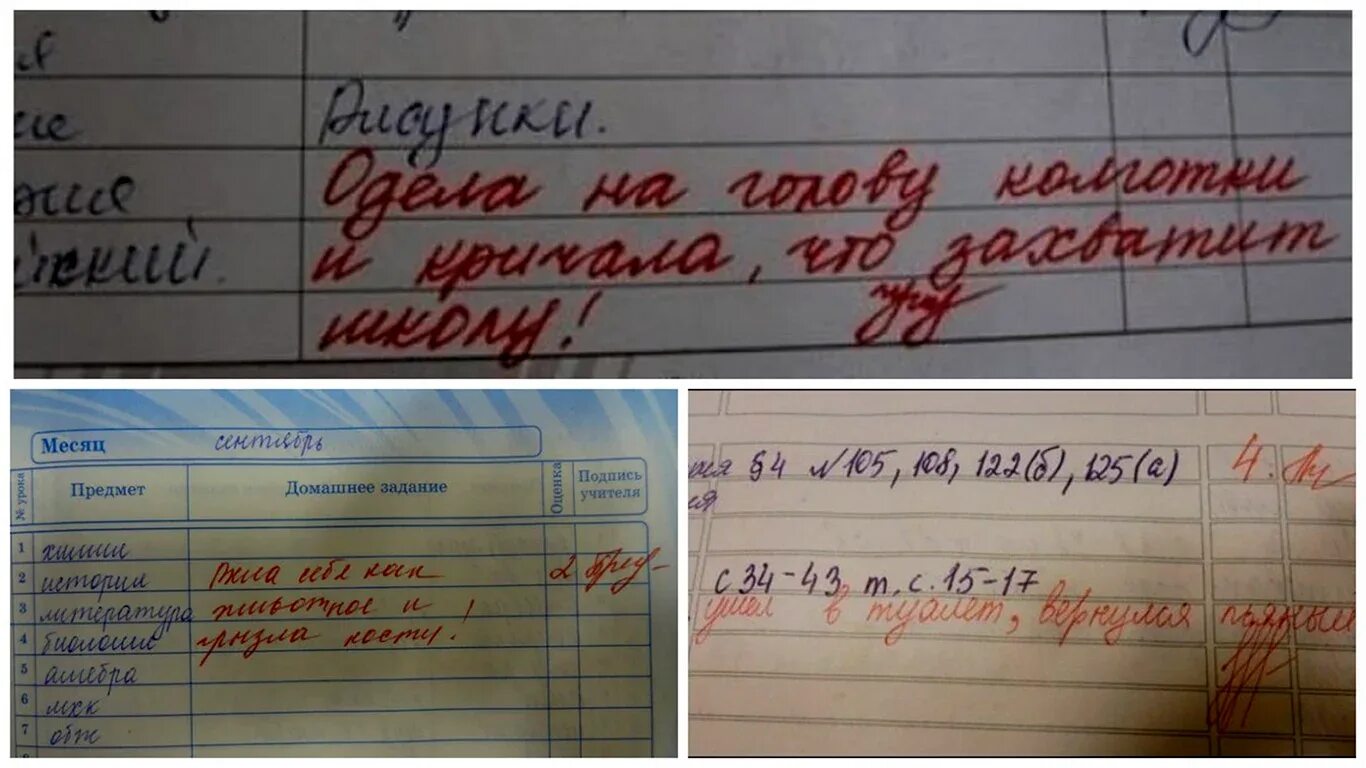 Рисунки.
жия
Одела на голову колготки
йский.
и кричала, что захватит
школу!
Месяц
сентябрь
№ урока
Предмет
Домашнее задание
Оценка
Подпись учителя
1 химия
2 история Вела себя как 2
3 литература животное и
4 биология грызла кости!
5 алгебра
6 мхк
7 обж
§4 №105, 108, 122(б), 125(а) 4.
с.34-43, т. с.15-17
ушел в туалет, вернулся пьяный